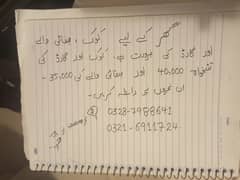 گھر کے لیے کوک ، صفائی والے
اور گارڈ کی ضرورت ہے کوک اور گارڈ کی
تنخواہ 40,000 اور صفائی والے کی 35,000 -
ان نمبروں پر رابطہ کریں -
0328-7988641
0321-6911724